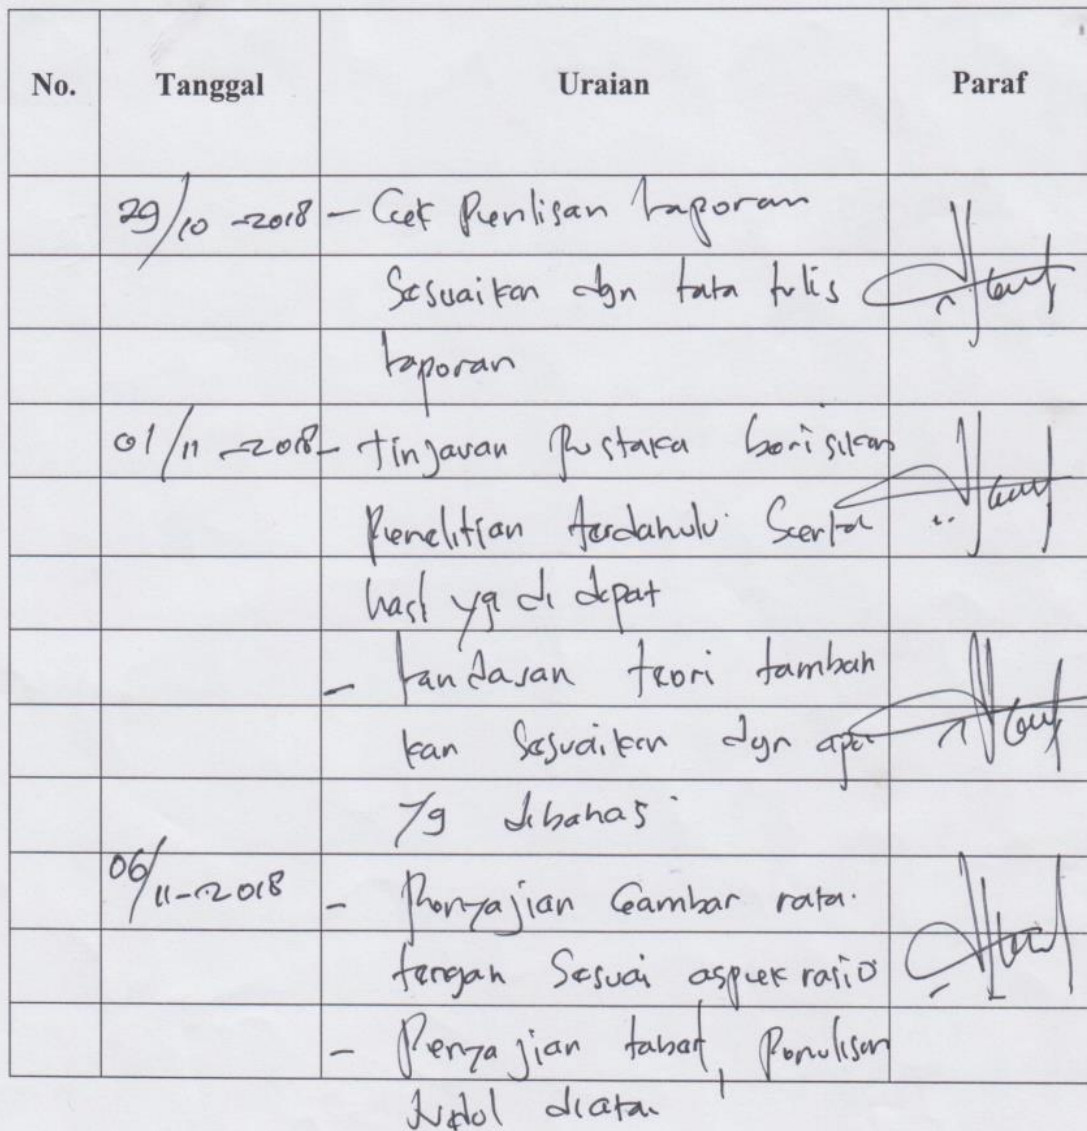 No. Tanggal Uraian Paraf
29/10-2018 - Cek Penlisan laporan
Sesuaikan dgn tata tulis
laporan
01/11-2018 - tinjauan Pustaka berisikan
Penelitian terdahulu Serta
hasl yg di dapat
- landasan teori tambah
kan Sesuaikan dgn apa
yg dibahas
06/11-2018 - Penyajian Gambar rata
tengah Sesuai aspek rasio
- Penyajian tabel, Penulisan
Judul diatas